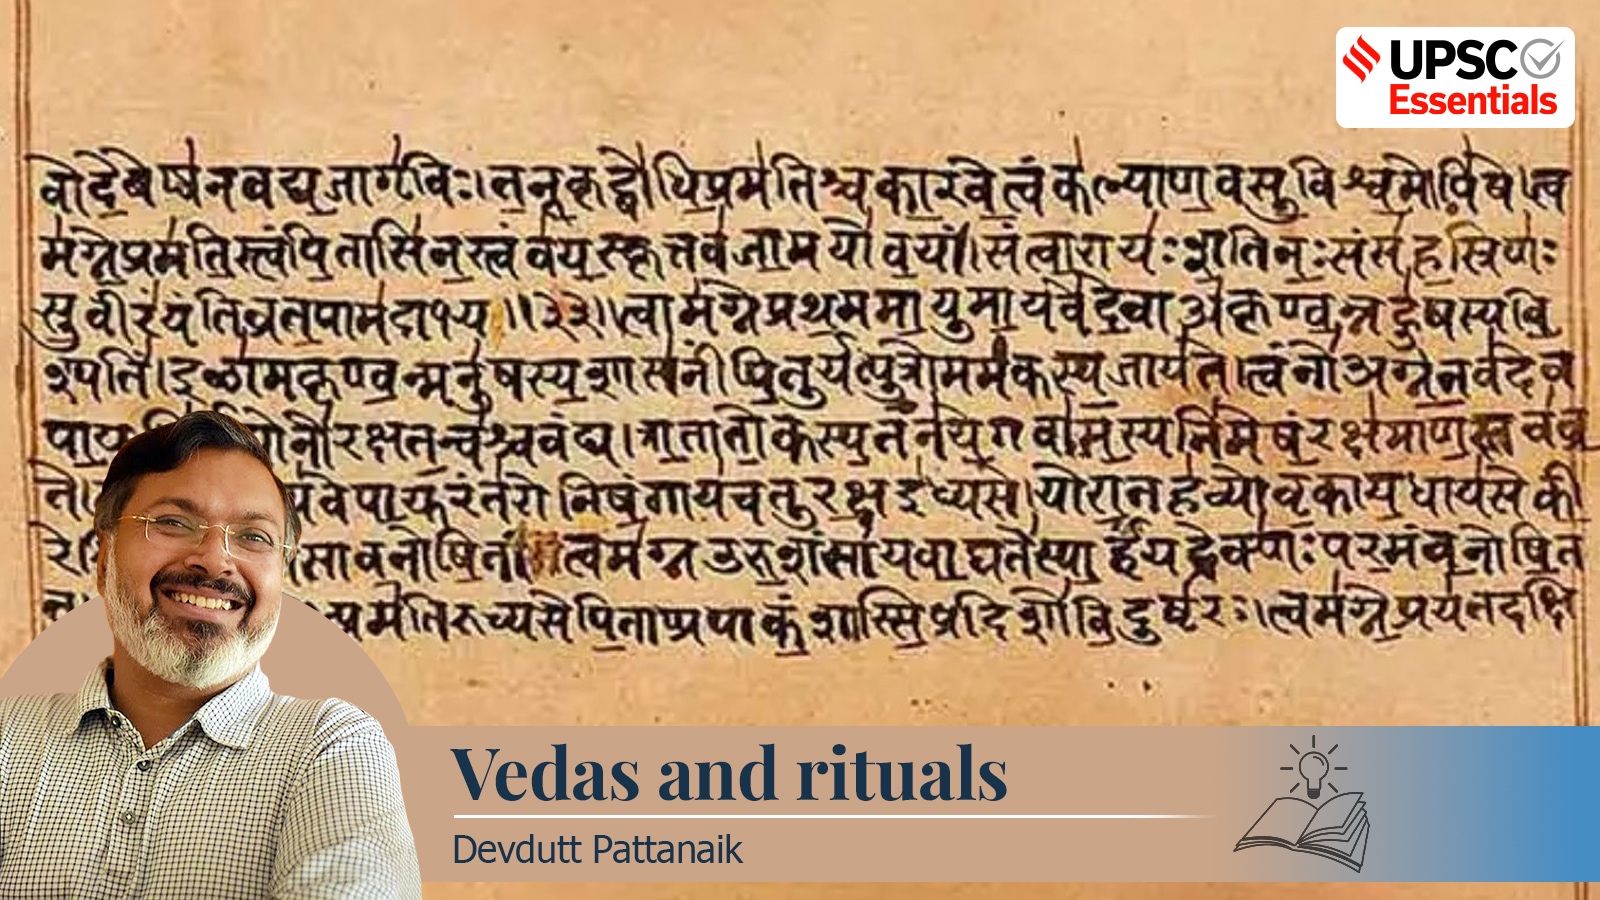 UPSC
Essentials
वोदेवेष्वनवद्यजागृविः।तनूकृद्बोधिप्रमतिश्चकारवेत्वंकल्याणवसुविश्वमोपिषे।त्व
मग्नेप्रमतिस्त्वंपितासिनस्त्वंवयस्कृत्तवजामयोवयं॥संत्वारायःशतिनःसंसहस्रिणः
सुवीरंयंतिव्रतपामदाभ्य॥३३॥त्वामग्नेप्रथममायुमायवेदेवाअकृण्वन्नहुषस्यवि
श्पतिं।इळामकृण्वन्मनुषस्यशासनींपितुर्यत्पुत्रोममकस्यजायते।त्वंनोअग्नेतवदेव
पायु नोरक्षतन्वश्चवंद्य।त्रातातोकस्यतनयेगवामस्यनिमेषंरक्षमाणस्तवव्र
ते। वेपायुरंतरोनिषंगायचतुरक्षइध्यसे।योरातहव्योवृकायधायसेकी
रे सावनोषितं॥त्वमग्नउरुशंसायवाघतेस्पार्हंयद्रेक्णःपरमंवनोषित
प्रमतिरुच्यसेपिताप्रपाकंशास्सिप्रदिशोविदुष्टरः।त्वमग्नेप्रयतदक्षि
Vedas and rituals
Devdutt Pattanaik